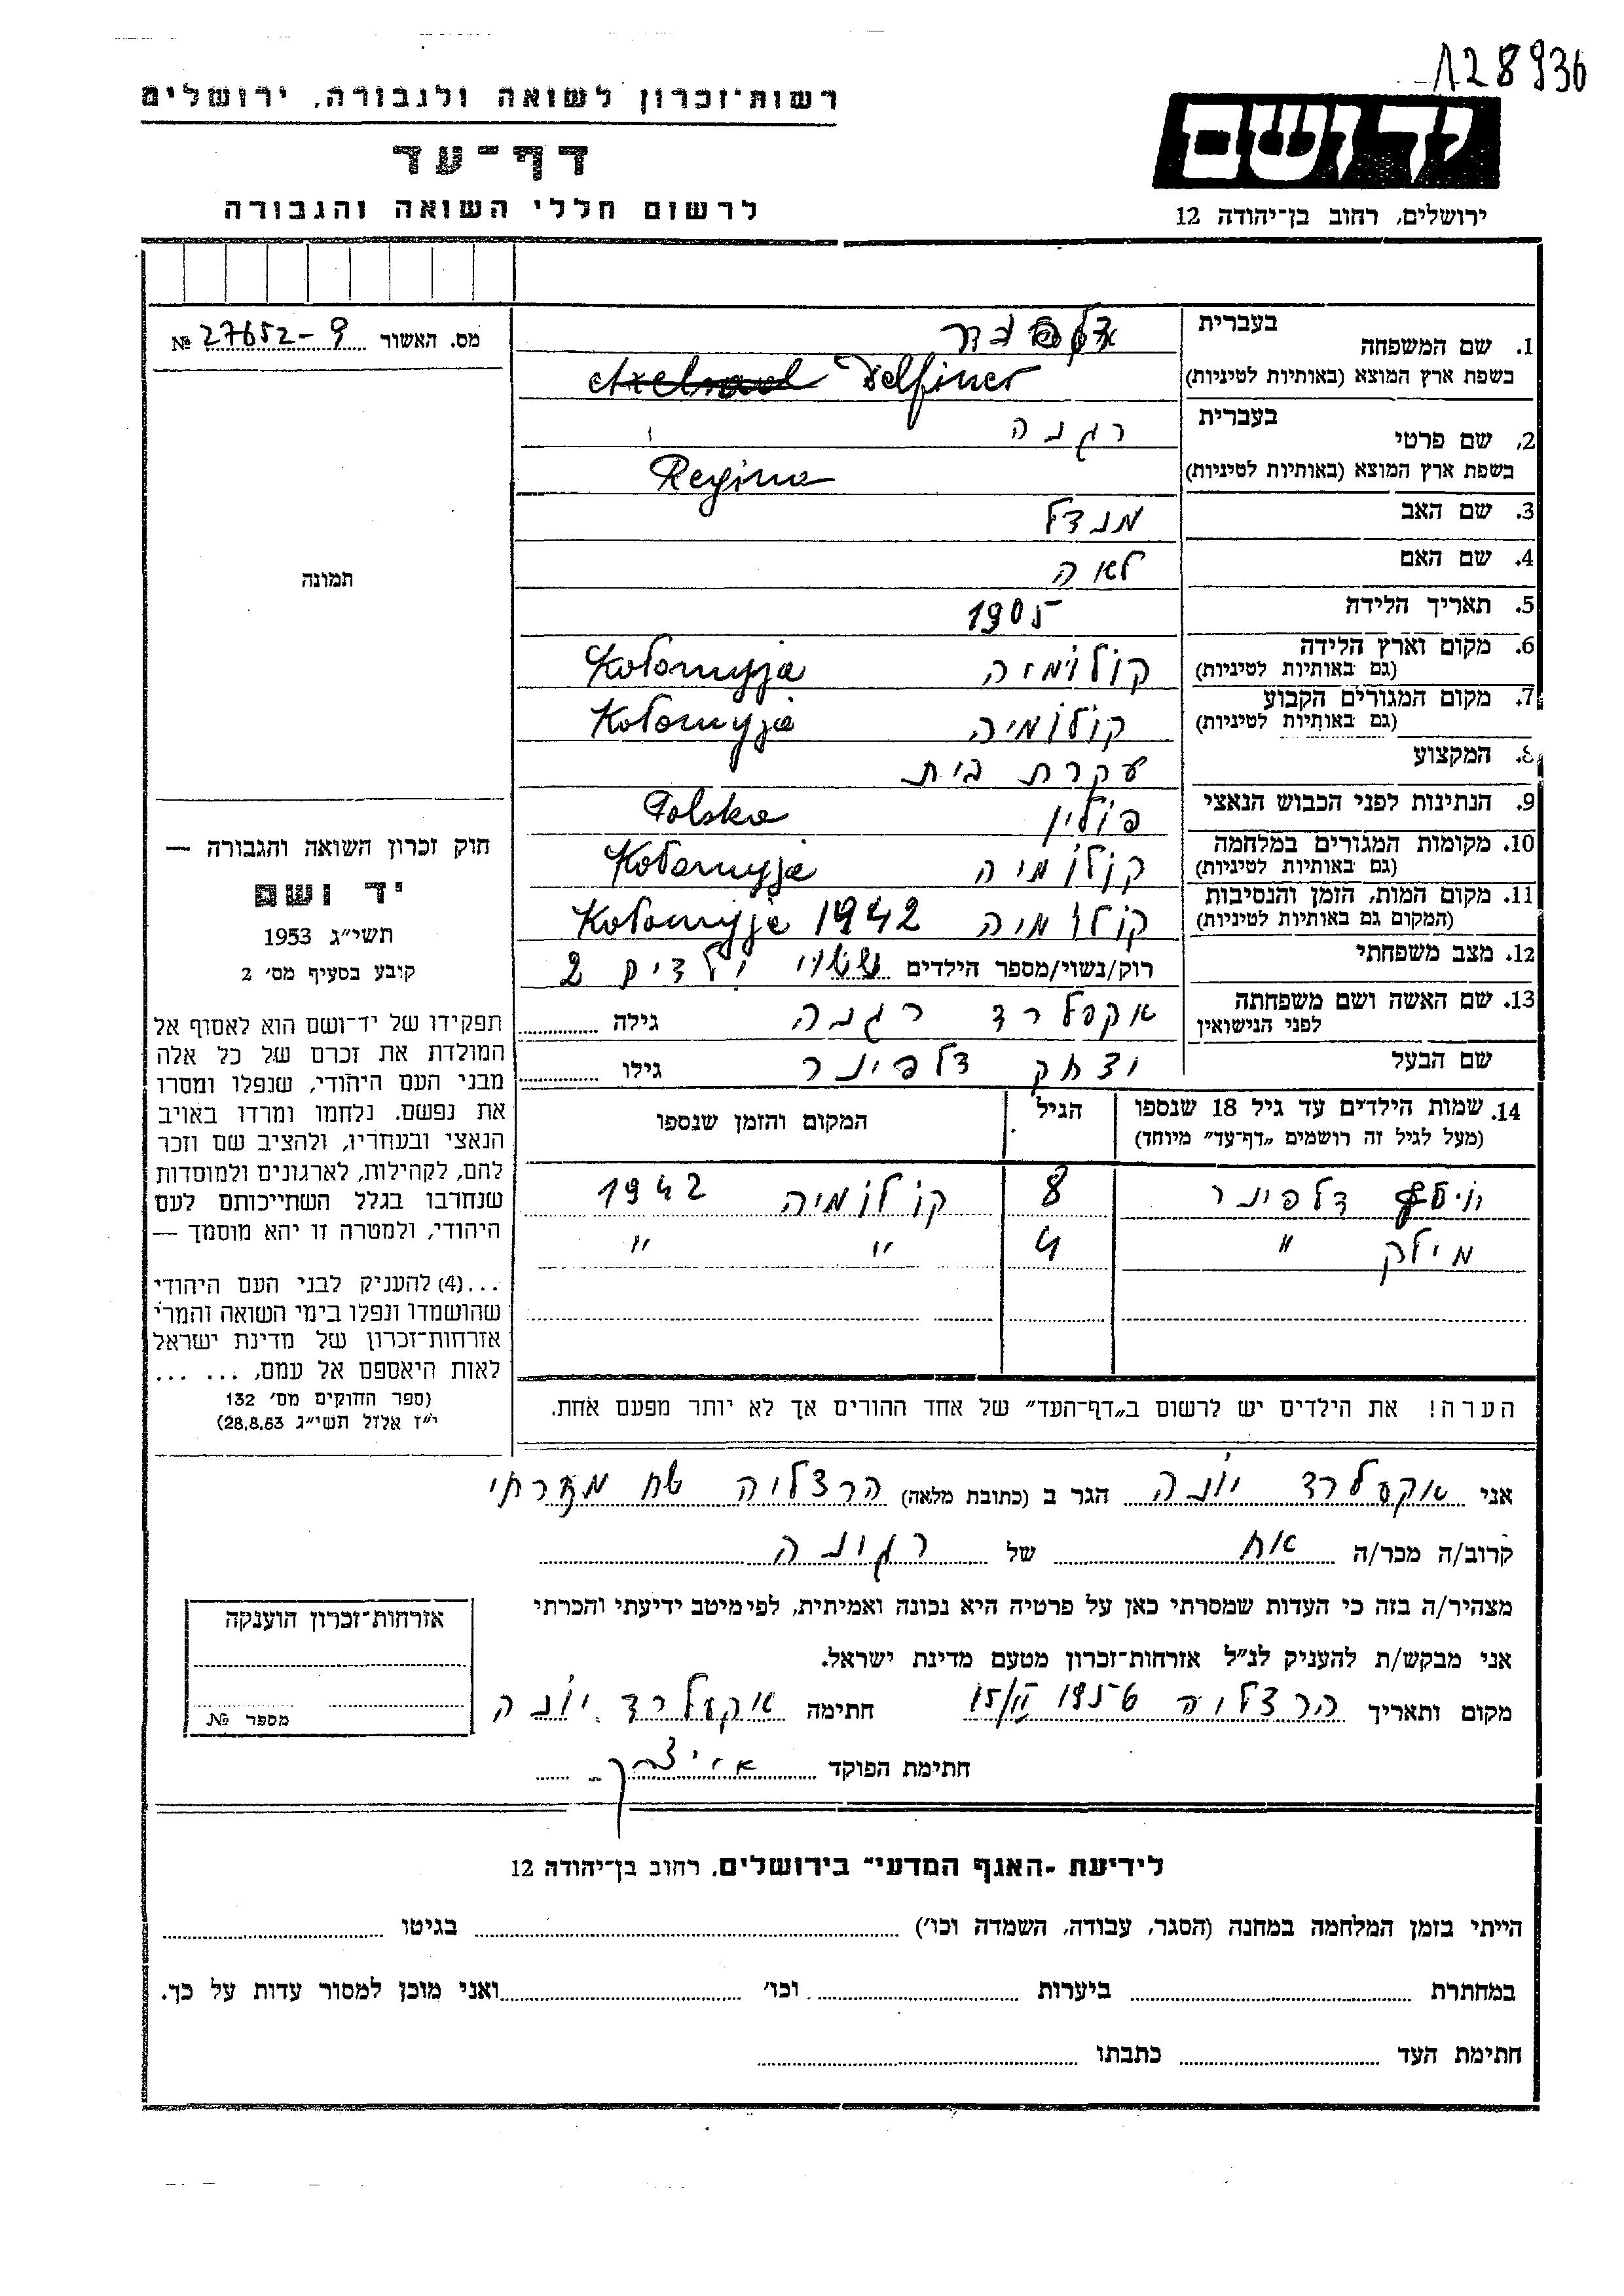 128936
רשות־זכרון לשואה ולגבורה, ירושלים
דף־עד
לרשום חללי השואה והגבורה
יד ושם
ירושלים, רחוב בן־יהודה 12
מס. האשור 27652-9 №
תמונה
חוק זכרון השואה והגבורה —
יד ושם
תשי״ג 1953
קובע בסעיף מס׳ 2
תפקידו של יד־ושם הוא לאסוף אל
המולדת את זכרם של כל אלה
מבני העם היהודי, שנפלו ומסרו
את נפשם. נלחמו ומרדו באויב
הנאצי ובעוזריו, ולהציב שם וזכר
להם, לקהילות, לארגונים ולמוסדות
שנחרבו בגלל השתייכותם לעם
היהודי, ולמטרה זו יהא מוסמך —
...(4) להעניק לבני העם היהודי
שהושמדו ונפלו בימי השואה והמרי
אזרחות־זכרון של מדינת ישראל
לאות היאספם אל עמם, ... ...
(ספר החוקים מס׳ 132
י״ז אלול תשי״ג 28.8.53)
1. שם המשפחה בעברית
בשפת ארץ המוצא (באותיות לטיניות) Axelraad Delfiner
2. שם פרטי בעברית רגנה
בשפת ארץ המוצא (באותיות לטיניות) Regina
3. שם האב מנדל
4. שם האם לאה
5. תאריך הלידה 1905
6. מקום וארץ הלידה (גם באותיות לטיניות) קולומיה Kołomyja
7. מקום המגורים הקבוע (גם באותיות לטיניות) קולומיה Kołomyja
8. המקצוע עקרת בית
9. הנתינות לפני הכבוש הנאצי פולין Polska
10. מקומות המגורים במלחמה (גם באותיות לטיניות) קולומיה Kołomyja
11. מקום המות, הזמן והנסיבות (המקום גם באותיות לטיניות) קולומיה Kołomyja 1942
12. מצב משפחתי רוק/נשוי/מספר הילדים נשוי ילדים 2
13. שם האשה ושם משפחתה לפני הנישואין אקסלרד רגנה גילה
שם הבעל יצחק דלפינר גילו
14. שמות הילדים עד גיל 18 שנספו הגיל המקום והזמן שנספו
(מעל לגיל זה רושמים „דף־עד״ מיוחד)
יוסף דלפינר 8 קולומיה 1942
מילק ״ 4 ״ ״
הערה! את הילדים יש לרשום ב„דף־העד״ של אחד ההורים אך לא יותר מפעם אחת.
אני אקסלרד יונה הגר ב (כתובת מלאה) הרצליה שח מזרחי
קרוב/ה מכר/ה אח של רגינה
מצהיר/ה בזה כי העדות שמסרתי כאן על פרטיה היא נכונה ואמיתית, לפי מיטב ידיעתי והכרתי
אני מבקש/ת להעניק לנ״ל אזרחות־זכרון מטעם מדינת ישראל.
מקום ותאריך הרצליה 15/II 1956 חתימה אקסלרד יונה
חתימת הפוקד
אזרחות־זכרון הוענקה
מספר №
לידיעת ״האגף המדעי״ בירושלים, רחוב בן־יהודה 12
הייתי בזמן המלחמה במחנה (הסגר, עבודה, השמדה וכו׳) בגיטו
במחתרת ביערות וכו׳ ואני מוכן למסור עדות על כך.
חתימת העד כתבתו